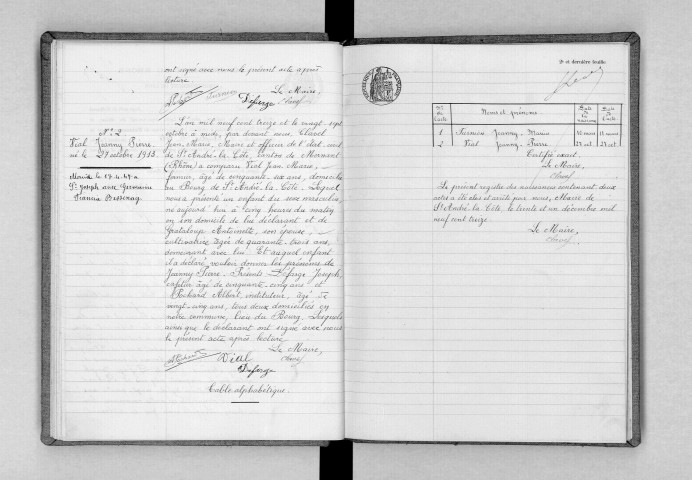 ont signé avec nous le présent acte après
lecture.
Le Maire,
Deforge
N° 2
Vial Jeanny Pierre
né le 27 octobre 1913
Marié le 17.4.47 à
St Joseph avec Germaine
Francia Bissonay
L'an mil neuf cent treize et le vingt sept
octobre à midi, par devant nous, Clavel
Jean Marie, Maire et officier de l'état civil
de St André-la-Côte, canton de Mornant
(Rhône) a comparu Vial Jean Marie,
fermier, âgé de cinquante six ans, domicilié
au Bourg de St André-la-Côte. Lequel
nous a présenté un enfant du sexe masculin,
né aujourd'hui à cinq heures du matin
en son domicile de lui déclarant et de
Grataloup Antoinette, son épouse,
cultivatrice âgée de quarante trois ans,
demeurant avec lui. Et auquel enfant
il a déclaré vouloir donner les prénoms de
Jeanny Pierre. Présents Deforge Joseph,
cafetier âgé de cinquante cinq ans et
Pochard Albert, instituteur, âgé de
vingt-cinq ans, tous deux domiciliés en
notre commune, lieu du Bourg. Lesquels
ainsi que le déclarant ont signé avec nous
le présent acte après lecture.
Le Maire,
Vial
Deforge
Table alphabétique.
2e et dernière feuille
Nos de l'acte Noms et prénoms Date de la naissance Date de l'acte
1 Jeanny Marius 10 mars 11 mars
2 Vial Jeanny Pierre 27 oct 27 oct
Certifié exact
Le Maire,
Le présent registre des naissances contenant deux
actes a été clos et arrêté par nous, Maire de
St André la Côte, le trente et un décembre mil
neuf cent treize.
Le Maire,